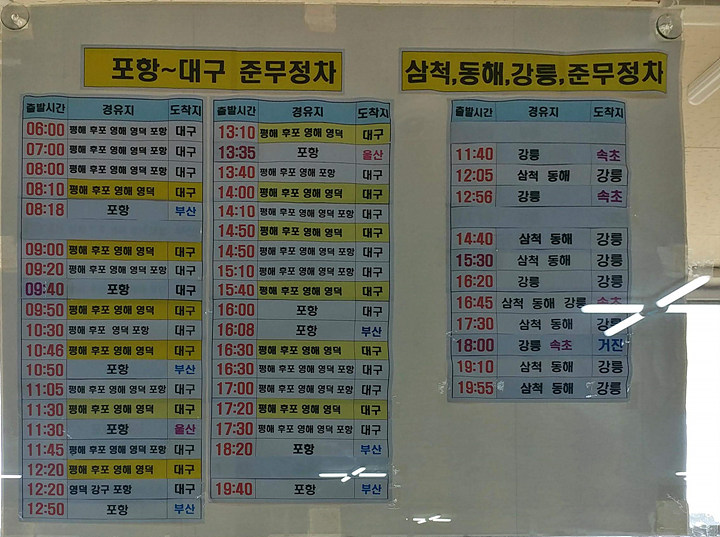 포항~대구 준무정차
출발시간 경유지 도착지
06:00 평해 후포 영해 영덕 포항 대구
07:00 평해 후포 영해 영덕 포항 대구
08:00 평해 후포 영해 영덕 포항 대구
08:10 평해 후포 영해 영덕 대구
08:18 포항 부산
09:00 평해 후포 영해 영덕 대구
09:20 평해 후포 영해 영덕 포항 대구
09:40 포항 대구
09:50 평해 후포 영해 영덕 대구
10:30 평해 후포 영덕 포항 대구
10:46 평해 후포 영해 영덕 대구
10:50 포항 부산
11:05 평해 후포 영해 영덕 포항 대구
11:30 평해 후포 영해 영덕 대구
11:30 포항 울산
11:45 평해 후포 영해 영덕 포항 대구
12:20 평해 후포 영해 영덕 대구
12:20 영덕 강구 포항 대구
12:50 포항 부산
출발시간 경유지 도착지
13:10 평해 후포 영해 영덕 대구
13:35 포항 울산
13:40 평해 후포 영해 포항 대구
14:00 평해 후포 영해 영덕 대구
14:10 평해 후포 영해 영덕 포항 대구
14:50 평해 후포 영해 영덕 대구
14:50 평해 후포 영해 영덕 포항 대구
15:10 평해 후포 영해 영덕 포항 대구
15:40 평해 후포 영해 영덕 대구
16:00 포항 대구
16:08 포항 부산
16:30 평해 후포 영해 영덕 대구
16:30 평해 후포 영해 영덕 포항 대구
17:00 평해 후포 영해 영덕 포항 대구
17:20 평해 후포 영해 영덕 대구
17:30 평해 후포 영해 영덕 포항 대구
18:20 포항 부산
19:40 포항 부산
삼척,동해,강릉,준무정차
출발시간 경유지 도착지
11:40 강릉 속초
12:05 삼척 동해 강릉
12:56 강릉 속초
14:40 삼척 동해 강릉
15:30 삼척 동해 강릉
16:20 강릉 강릉
16:45 삼척 동해 강릉 속초
17:30 삼척 동해 강릉
18:00 강릉 속초 거진
19:10 삼척 동해 강릉
19:55 삼척 동해 강릉